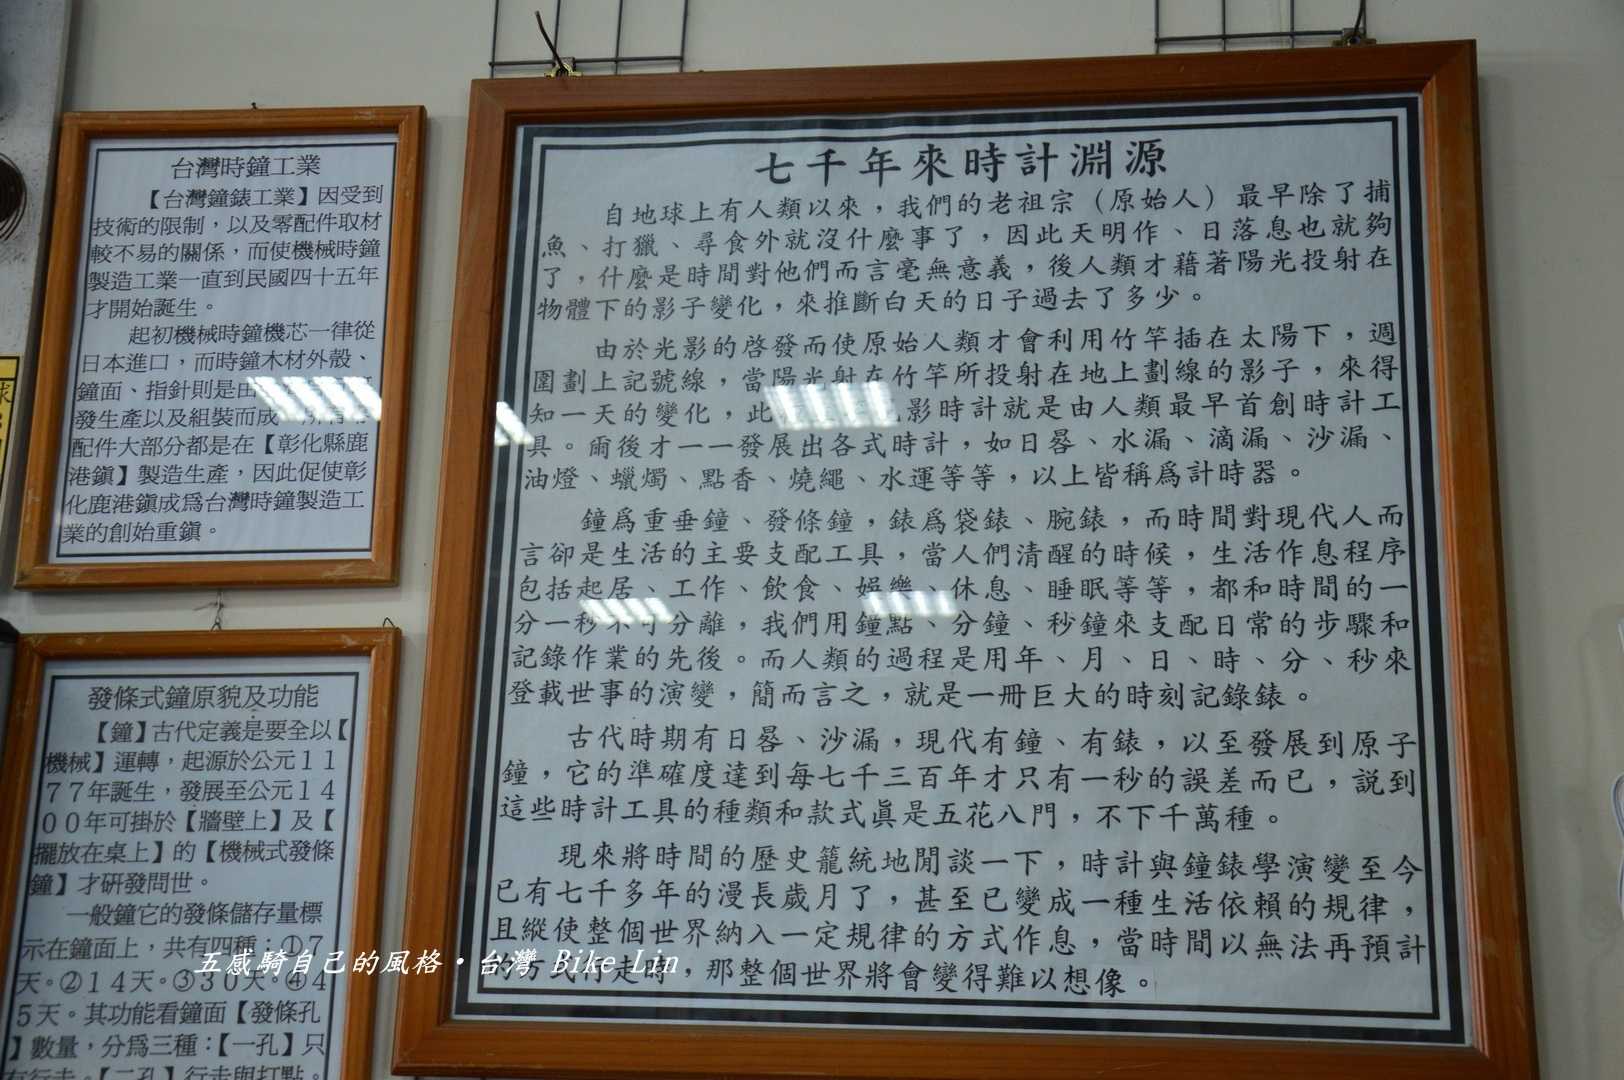 台灣時鐘工業
【台灣鐘錶工業】因受到
技術的限制，以及零配件取材
較不易的關係，而使機械時鐘
製造工業一直到民國四十五年
才開始誕生。
起初機械時鐘機芯一律從
日本進口，而時鐘木材外殼、
鐘面、指針則是由
發生產以及組裝而成
配件大部分都是在【彰化縣鹿
港鎮】製造生產，因此促使彰
化鹿港鎮成爲台灣時鐘製造工
業的創始重鎮。
發條式鐘原貌及功能
【鐘】古代定義是要全以【
機械】運轉，起源於公元１１
７７年誕生，發展至公元１４
００年可掛於【牆壁上】及【
擺放在桌上】的【機械式發條
鐘】才研發問世。
一般鐘它的發條儲存量標
示在鐘面上，共有四種：①７
天。②１４天。③３０天。④４
５天。其功能看鐘面【發條孔
】數量，分爲三種：【一孔】只
有行走。【二孔】行走與打點。
七千年來時計淵源
自地球上有人類以來，我們的老祖宗（原始人）最早除了捕
魚、打獵、尋食外就沒什麼事了，因此天明作、日落息也就夠
了，什麼是時間對他們而言毫無意義，後人類才藉著陽光投射在
物體下的影子變化，來推斷白天的日子過去了多少。
由於光影的啓發而使原始人類才會利用竹竿插在太陽下，週
圍劃上記號線，當陽光射在竹竿所投射在地上劃線的影子，來得
知一天的變化，此影時計就是由人類最早首創時計工
具。爾後才一一發展出各式時計，如日晷、水漏、滴漏、沙漏、
油燈、蠟燭、點香、燒繩、水運等等，以上皆稱爲計時器。
鐘爲重垂鐘、發條鐘，錶爲袋錶、腕錶，而時間對現代人而
言卻是生活的主要支配工具，當人們清醒的時候，生活作息程序
包括起居、工作、飲食、娛樂、休息、睡眠等等，都和時間的一
分一秒不可分離，我們用鐘點、分鐘、秒鐘來支配日常的步驟和
記錄作業的先後。而人類的過程是用年、月、日、時、分、秒來
登載世事的演變，簡而言之，就是一冊巨大的時刻記錄錶。
古代時期有日晷、沙漏，現代有鐘、有錶，以至發展到原子
鐘，它的準確度達到每七千三百年才只有一秒的誤差而已，說到
這些時計工具的種類和款式眞是五花八門，不下千萬種。
現來將時間的歷史籠統地閒談一下，時計與鐘錶學演變至今
已有七千多年的漫長歲月了，甚至已變成一種生活依賴的規律，
且縱使整個世界納入一定規律的方式作息，當時間以無法再預計
的方式行走時，那整個世界將會變得難以想像。
五感騎自己的風格・台灣 Bike Lin